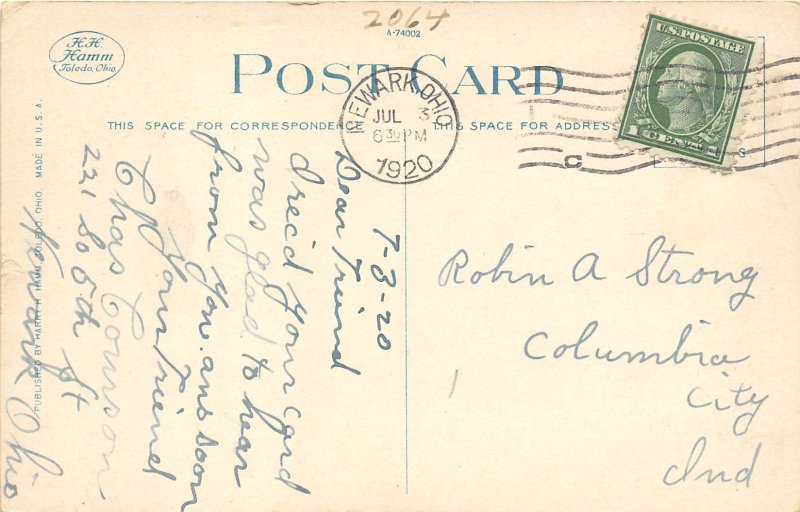 2064
A-74002
H.H.
Hamm
Toledo, Ohio.
POST CARD
THIS SPACE FOR CORRESPONDENCE
THIS SPACE FOR ADDRESS
NEWARK, OHIO
JUL 3
6 30 PM
1920
U.S. POSTAGE
1 CENT 1
C
7-3-20
Dear Friend
I rec'd your card
was glad to hear
from you. ans soon
Your Friend
Chas
221 So 5th St
Newark Ohio
Robin A Strong
Columbia
City
Ind
PUBLISHED BY HARRY H. HAMM, TOLEDO, OHIO. MADE IN U.S.A.